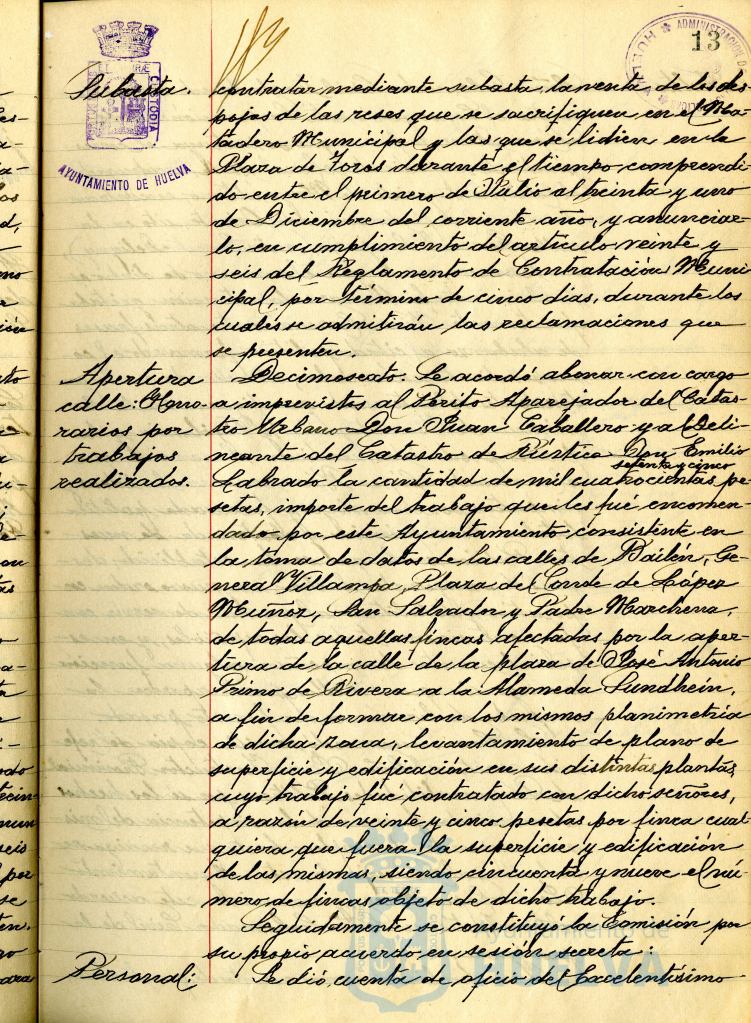 13
AYUNTAMIENTO DE HUELVA
Subasta.
contratar mediante subasta la venta de los des-
pojos de las reses que se sacrifiquen en el Ma-
tadero Municipal y las que se lidien en la
Plaza de Toros durante el tiempo comprendi-
do entre el primero de Julio al treinta y uno
de Diciembre del corriente año, y anunciar-
lo, en cumplimiento del artículo veinte y
seis del Reglamento de Contratación Muni-
cipal, por término de cinco días, durante los
cuales se admitirán las reclamaciones que
se presenten.
Apertura
calle: Hono-
rarios por
trabajos
realizados.
Decimosexto. Se acordó abonar con cargo
a imprevistos al Perito Aparejador del Catas-
tro Urbano Don Juan Caballero y al Deli-
neante del Catastro de Rústica Don Emilio
setenta y cinco
Labrado la cantidad de mil cuatrocientas pe-
setas, importe del trabajo que les fué encomen-
dado por este Ayuntamiento consistente en
la toma de datos de las calles de Bailén, Ge-
neral Villampa, Plaza del Conde de López
Muñoz, San Salvador y Padre Marchena,
de todas aquellas fincas afectadas por la aper-
tura de la calle de la plaza de José Antonio
Primo de Rivera a la Alameda Sundhein,
a fin de formar con los mismos planimetría
de dicha zona, levantamiento de plano de
superficie y edificación en sus distintas plantas,
cuyo trabajo fué contratado con dichos señores,
a razón de veinte y cinco pesetas por finca cual-
quiera que fuera la superficie y edificación
de las mismas, siendo cincuenta y nueve el nú-
mero de fincas objeto de dicho trabajo.
Seguidamente se constituyó la Comisión por
su propio acuerdo en sesión secreta:
Personal:
Se dió cuenta de oficio del Excelentísimo